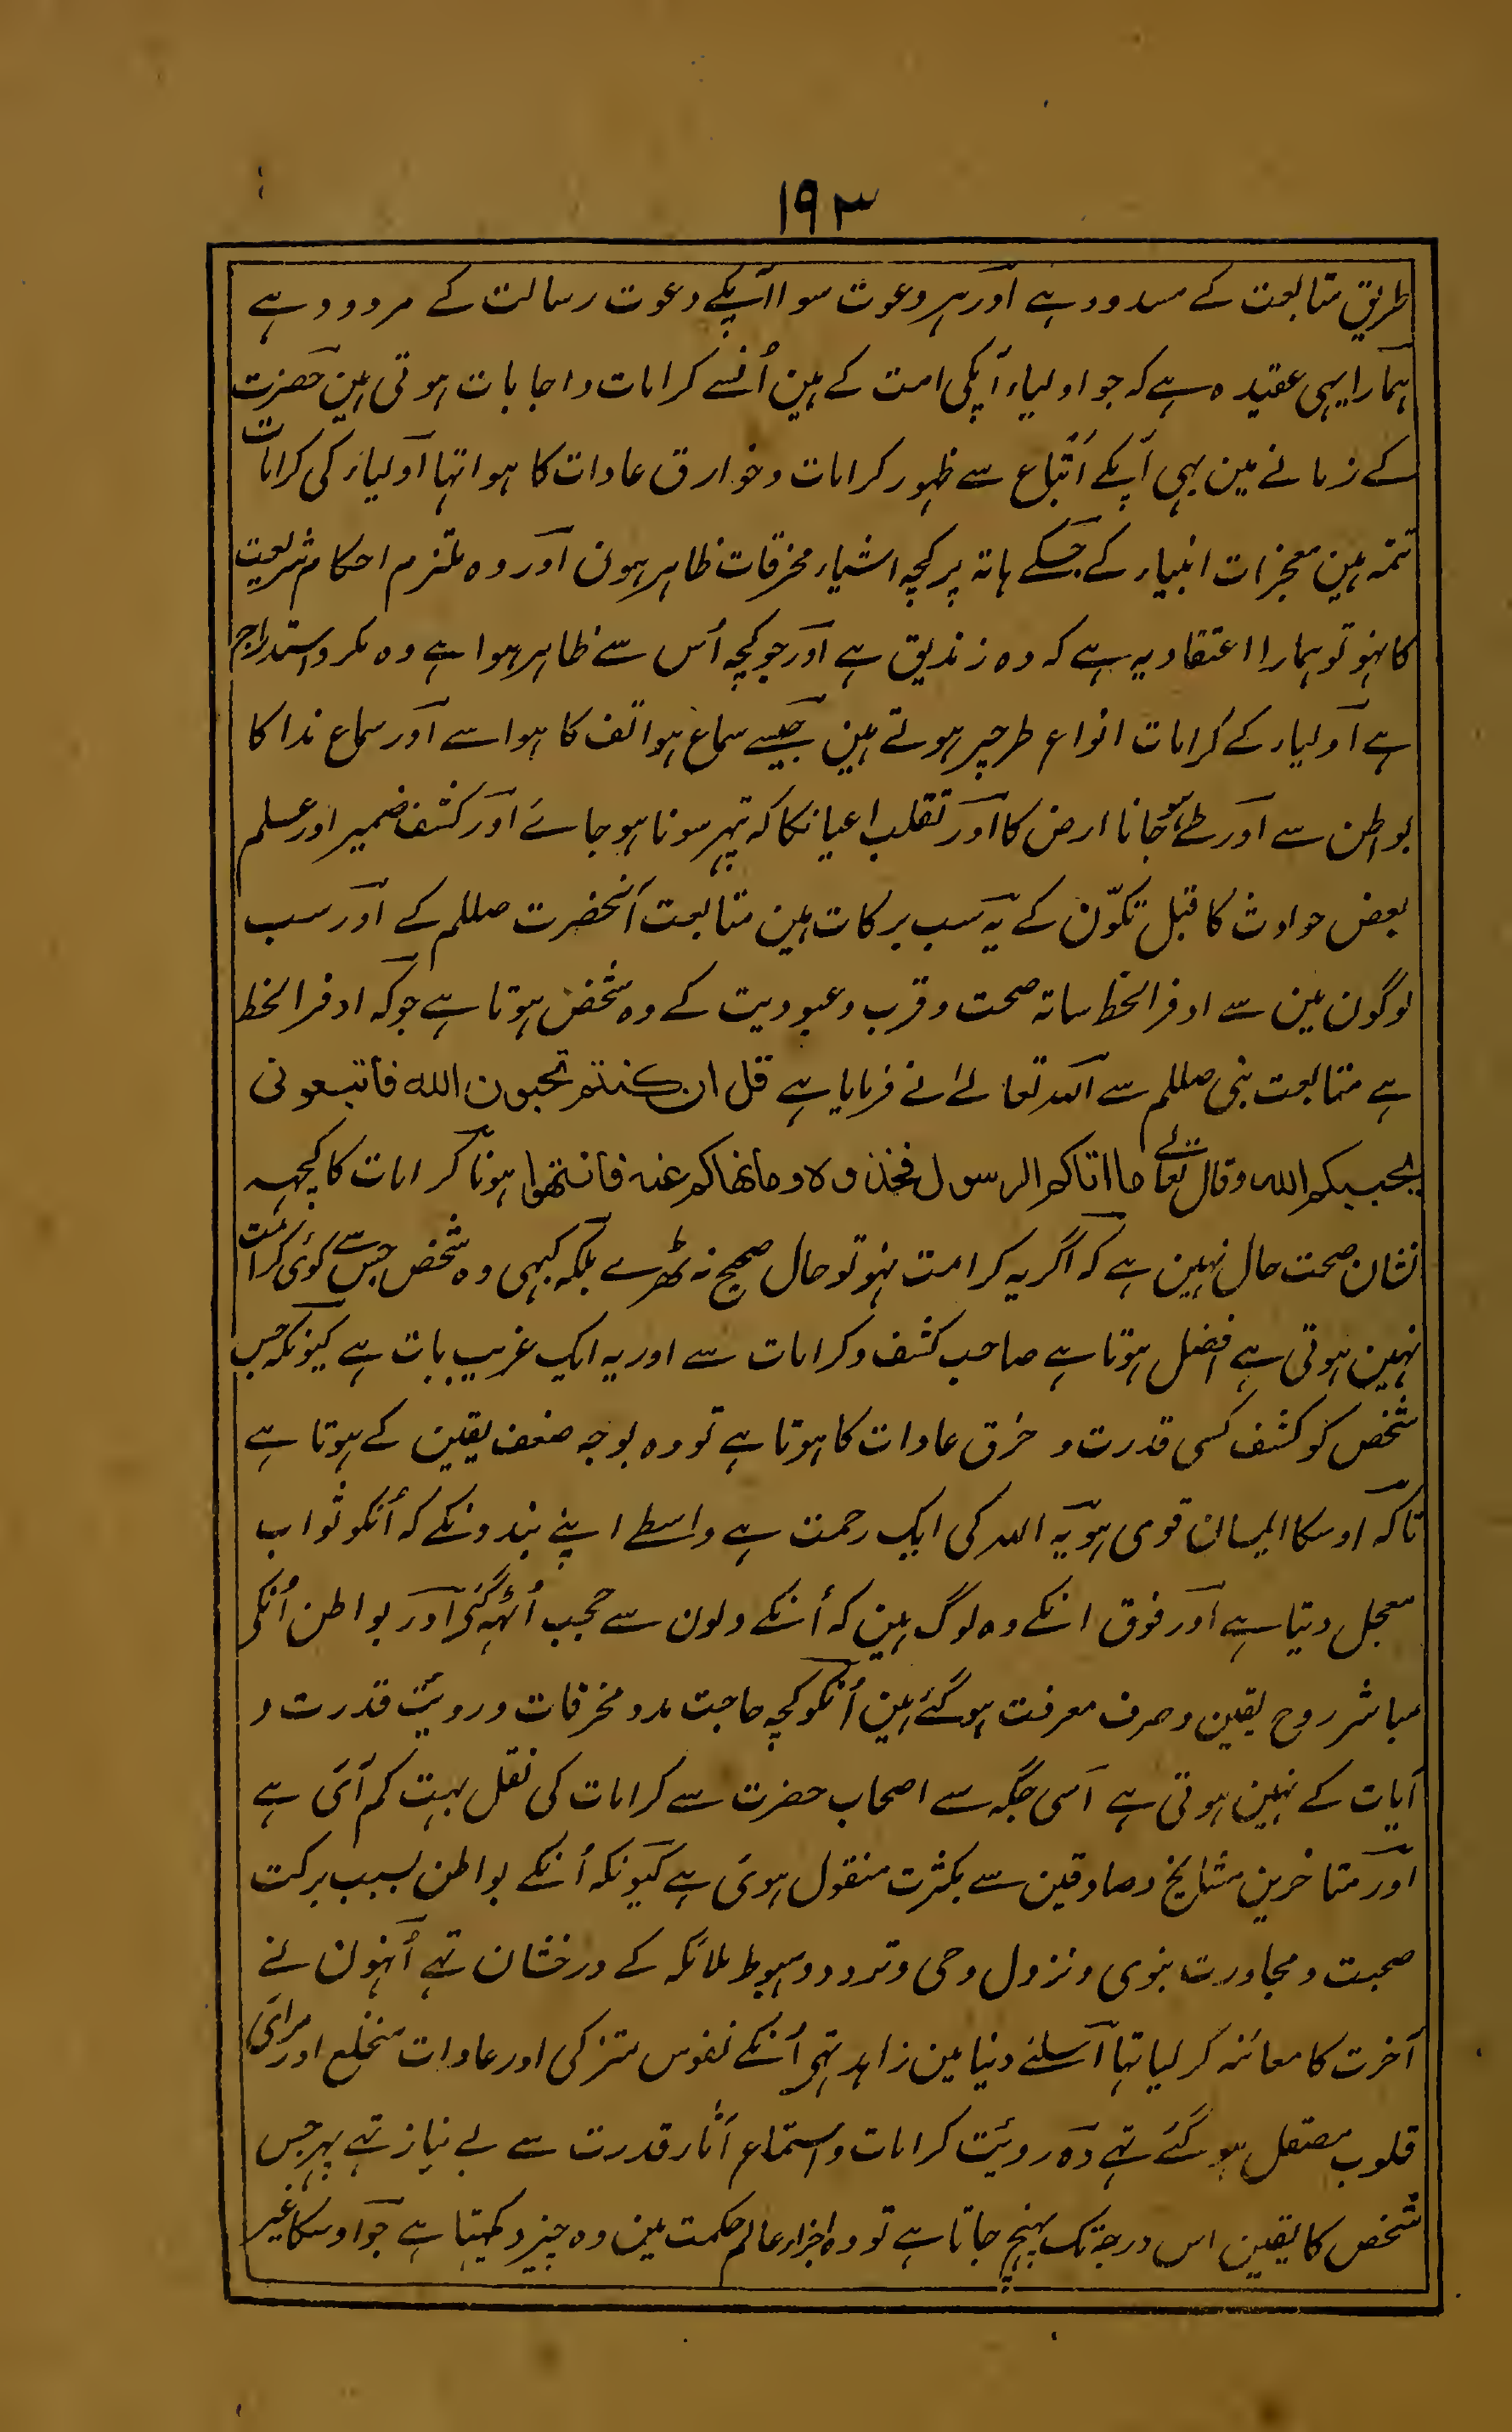 ۱۹۳
طریق متابعت کے مسدود ہے اور ہر دعوت سوا آپکے دعوت رسالت کے مردود ہے
ہمارا یہی عقیدہ ہے کہ جو اولیاء آپکی امت کے ہین اُنسے کرامات واجابات ہوتی ہین حضرت
کے زمانے مین بہی آپکے اَتباع سے ظہور کرامات وخوارق عادات کا ہوا تہا اولیاء کی کرامات
تتمہ ہین معجزات انبیاء کے جسکے ہاتہ پر کچہ اشیاء مخرقات ظاہر ہون اور وہ ملتزم احکام شریعت
کا نہو تو ہمارا اعتقاد یہ ہے کہ وہ زندیق ہے اور جو کچہ اُس سے ظاہر ہوا ہے وہ مکر واستدراج
ہے اولیاء کے کرامات انواع طرحپر ہوتے ہین جیسے سماع ہواتف کا ہوا سے اور سماع ندا کا
بواطن سے اور طے ہوجانا ارض کا اور تقلب اعیانکا کہ تپہر سونا ہوجائے اور کشف ضمیر اور علم
بعض حوادث کا قبل تکوّن کے یہ سب برکات ہین متابعت آنحضرت صللم کے اور سب
لوگون مین سے اوفر الحظ ساتہ صحت وقرب وعبودیت کے وہ شخص ہوتا ہے جو کہ اوفر الحظ
ہے متابعت نبی صللم سے اللہ تعالےٰ نے فرمایا ہے قل ان کنتم تحبون اللہ فاتبعونی
یحببکم اللہ وقال تعالے ما اتاکم الرسول فخذوہ وما نھاکم عنہ فانتھوا ہونا کرامات کا کچہہ
نشان صحت حال نہین ہے کہ اگر یہ کرامت نہو تو حال صحیح نہ ٹھرے بلکہ کبہی وہ شخص جس سے کوئی کرامت
نہین ہوتی ہے افضل ہوتا ہے صاحب کشف وکرامات سے اور یہ ایک غریب بات ہے کیونکہ جس
شخص کو کشف کسی قدرت و خرق عادات کا ہوتا ہے تو وہ بوجہ ضعف یقین کے ہوتا ہے
تاکہ اوسکا ایمان قوی ہو یہ اللہ کی ایک رحمت ہے واسطے اپنے بندونکے کہ اُنکو ثواب
معجل دیتا ہے اور فوق انکے وہ لوگ ہین کہ اُنکے دلون سے حجب اُٹہہ گئے اور بواطن اُنکی
مباشر روح یقین وصرف معرفت ہوگئے ہین اُنکو کچہ حاجت مدد مخرقات ورویئت قدرت و
آیات کے نہین ہوتی ہے اسی جگہ سے اصحاب حضرت سے کرامات کی نقل بہت کم آئی ہے
اور متاخرین مشایخ وصادقین سے بکثرت منقول ہوئی ہے کیونکہ اُنکے بواطن بسبب برکت
صحبت ومجاورت نبوی ونزول وحی وتردد وہبوط ملائکہ کے درخشان تہے اُنہون نے
آخرت کا معائنہ کر لیا تہا اسلئے دنیا مین زاہد تہے اُنکے نفوس متزکی اور عادات منخلع اور مرائی
قلوب مصتقل ہوگئے تہے وہ رویئت کرامات واستماع آثار قدرت سے بے نیاز تہے پہر جس
شخص کا یقین اس درجہ تک پہنچ جاتا ہے تو وہ اجزاء عالم حکمت مین وہ چیز دکہتا ہے جو اوسکا غیر